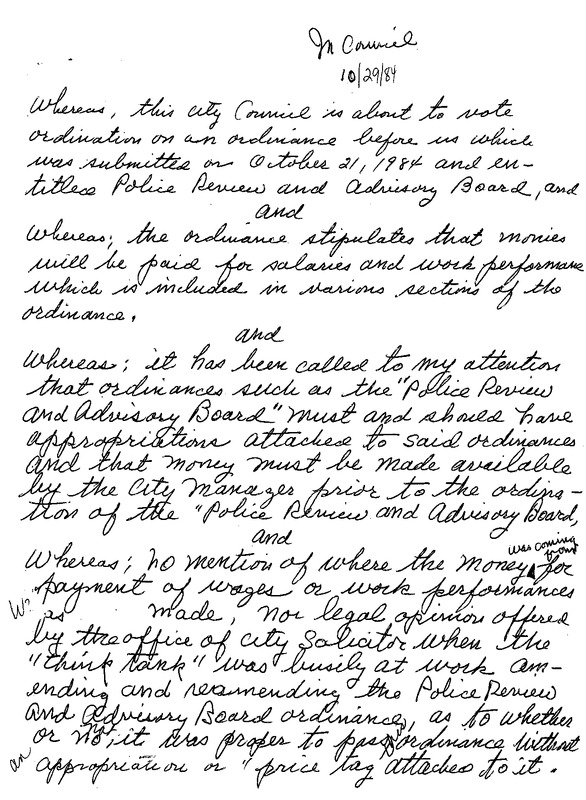 In Council
10/29/84
Whereas, this city Council is about to vote
ordination on an ordinance before us which
was submitted on October 21, 1984 and en-
titled Police Review and Advisory Board, and
and
Whereas; the ordinance stipulates that monies
will be paid for salaries and work performance
which is included in various sections of the
ordinance.
and
Whereas; it has been called to my attention
that ordinances such as the "Police Review
and Advisory Board" must and should have
appropriations attached to said ordinances
and that money must be made available
by the City Manager prior to the ordina-
tion of the "Police Review and Advisory Board,
and
Whereas; no mention of where the money was coming from for
payment of wages or work performances
was made, nor legal opinion offered
by the office of City Solicitor when the
"think tank" was busily at work am-
ending and reamending the Police Review
and Advisory Board ordinance, as to whether
or not, it was proper to pass ordinance without
an appropriation or "price tag attached to it.